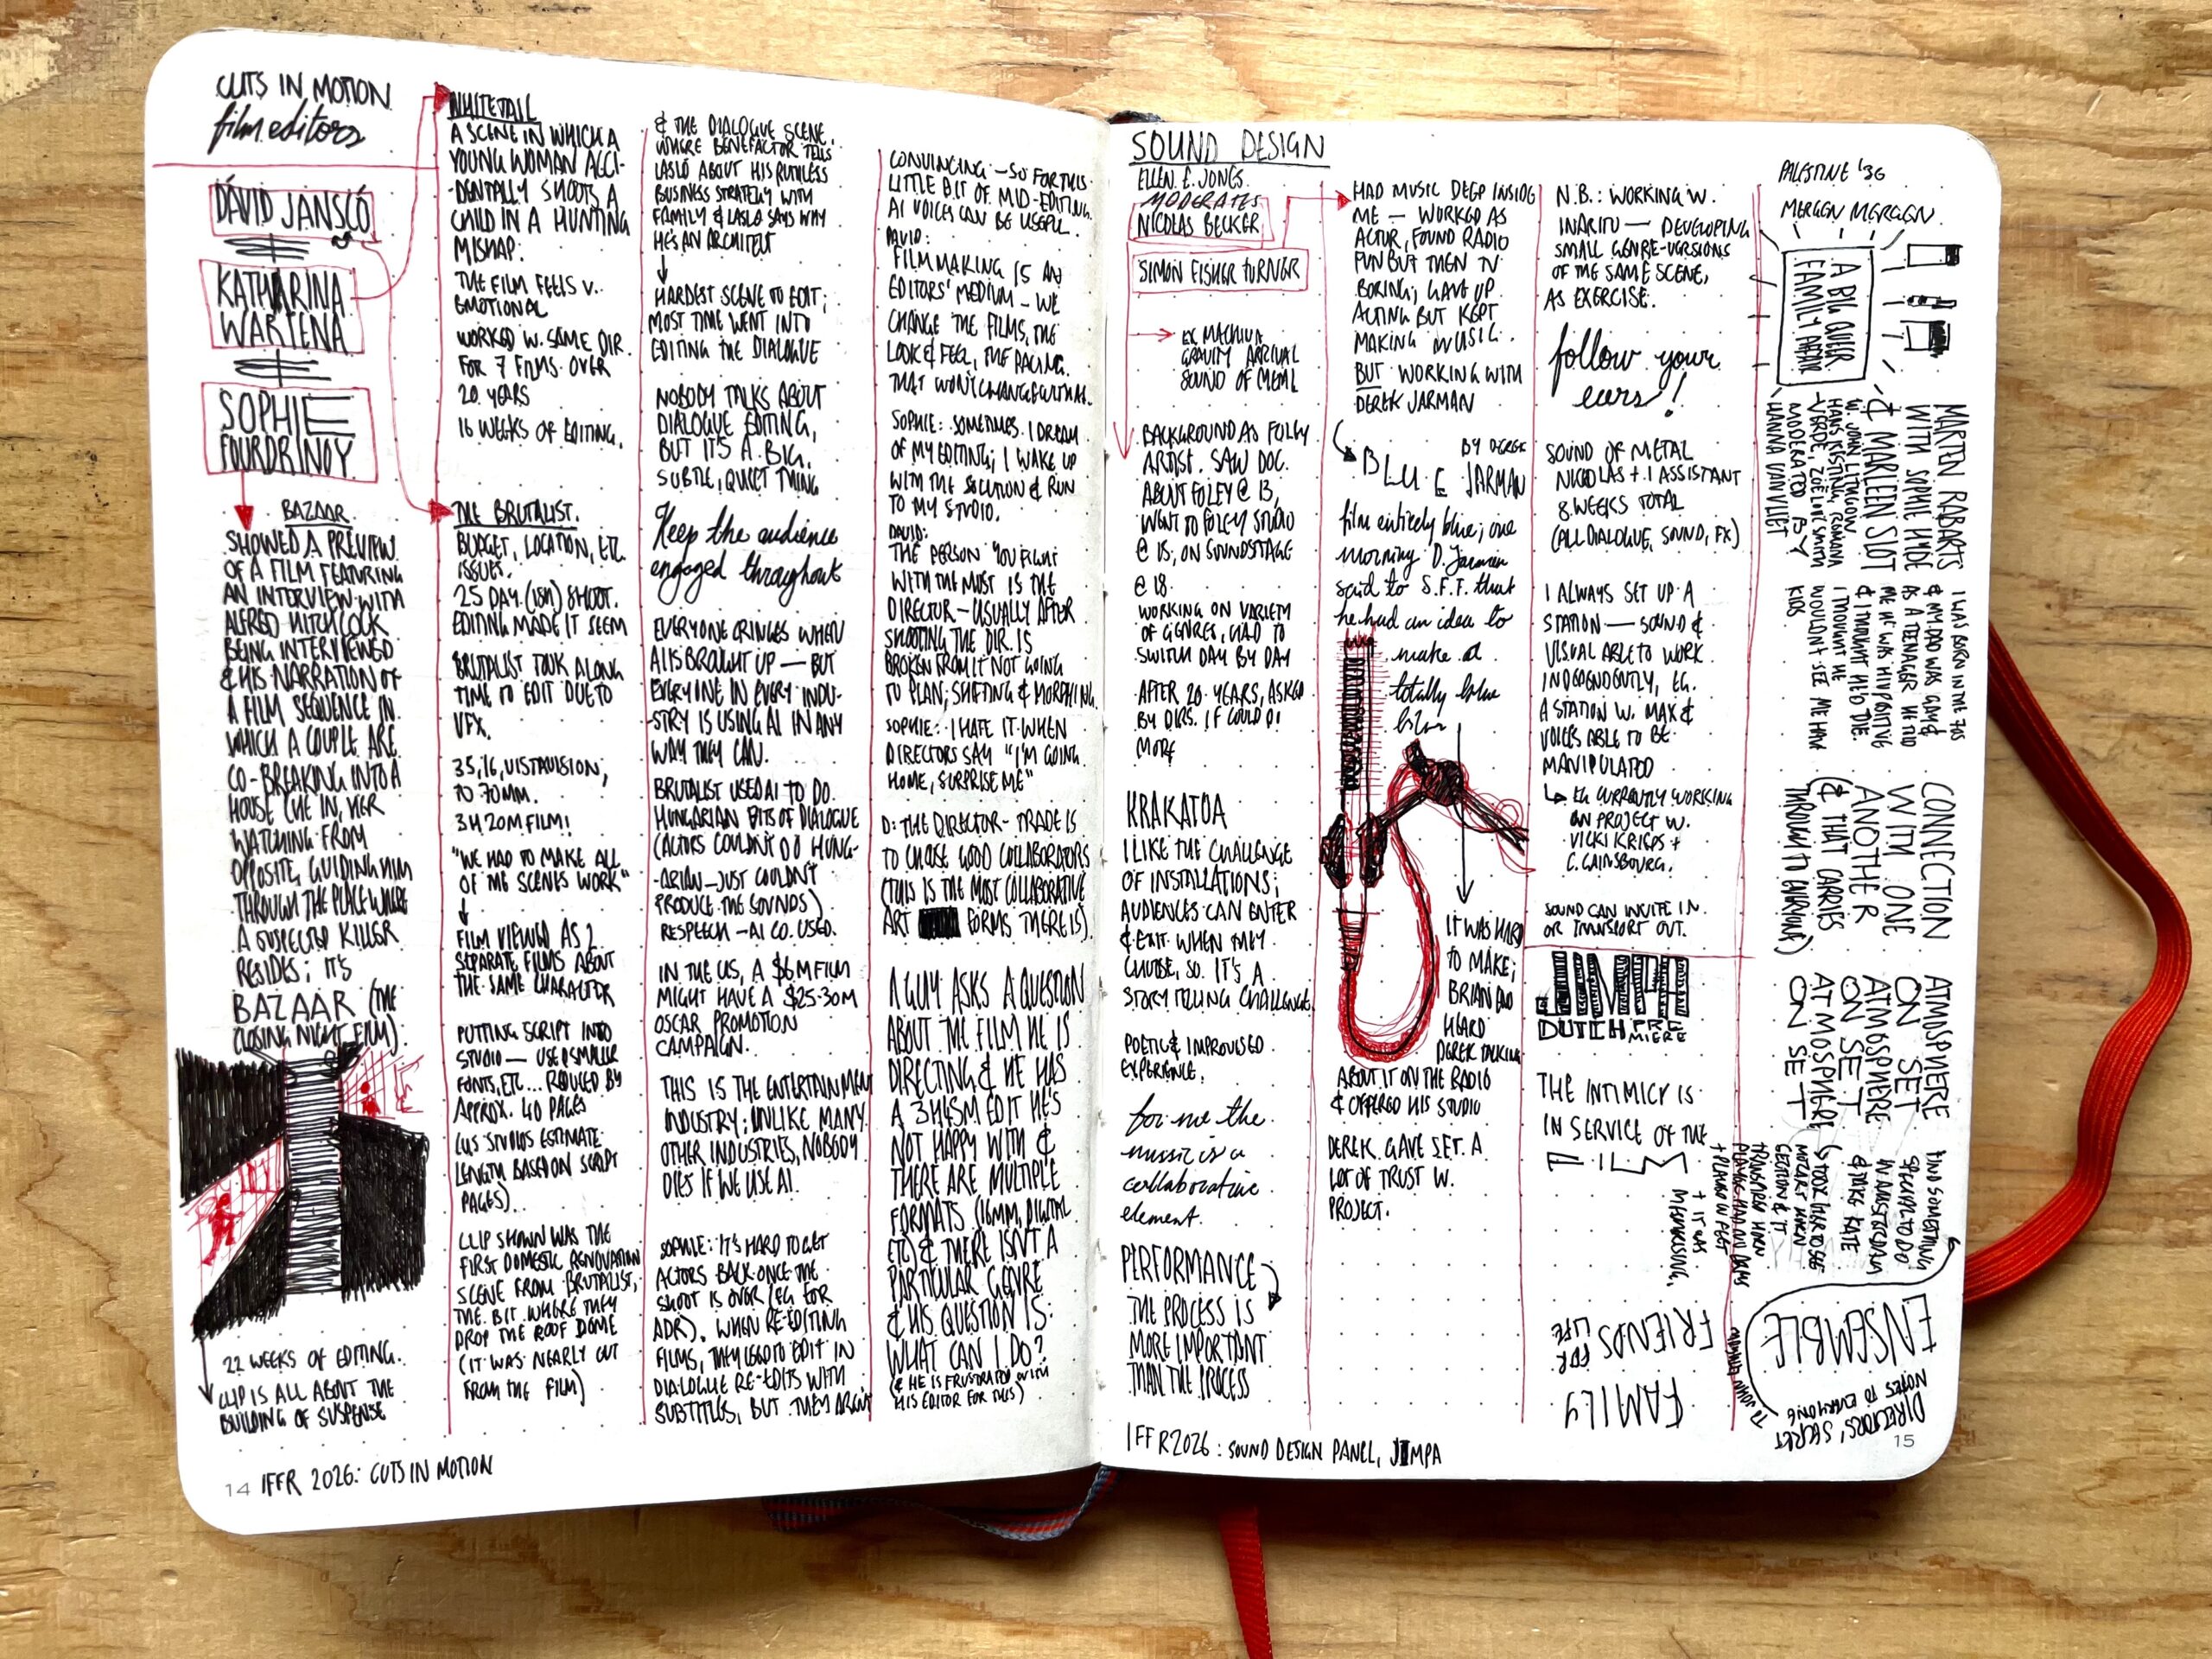 CUTS IN MOTION
film editors
DÁVID JANSCÓ
KATHARINA
WARTENA
SOPHIE
FOURDRINOY
BAZAAR
SHOWED A PREVIEW
OF A FILM FEATURING
AN INTERVIEW WITH
ALFRED HITCHCOCK
BEING INTERVIEWED
& HIS NARRATION OF
A FILM SEQUENCE IN
WHICH A COUPLE ARE
CO-BREAKING INTO A
HOUSE (HE IN, HER
WATCHING FROM
OPPOSITE, GUIDING HIM
THROUGH THE PLACE WHERE
A SUSPECTED KILLER
RESIDES; IT'S
BAZAAR (THE
CLOSING NIGHT FILM)
22 WEEKS OF EDITING.
CLIP IS ALL ABOUT THE
BUILDING OF SUSPENSE
WHITETAIL
A SCENE IN WHICH A
YOUNG WOMAN ACCI-
-DENTALLY SHOOTS A
CHILD IN A HUNTING
MISHAP.
THE FILM FEELS V.
EMOTIONAL
WORKED W. SAME DIR.
FOR 7 FILMS OVER
20 YEARS
16 WEEKS OF EDITING.
THE BRUTALIST.
BUDGET, LOCATION, ETC.
ISSUES.
25 DAY (ISH) SHOOT.
EDITING MADE IT SEEM
BRUTALIST TOOK A LONG
TIME TO EDIT DUE TO
VFX.
35, 16, VISTAVISION,
TO 70MM.
3H 20M FILM!
"WE HAD TO MAKE ALL
OF THE SCENES WORK"
FILM VIEWED AS 2
SEPARATE FILMS ABOUT
THE SAME CHARACTER
PUTTING SCRIPT INTO
STUDIO — USED SMALLER
FONTS, ETC... REDUCED BY
APPROX. 40 PAGES
(US STUDIOS ESTIMATE
LENGTH BASED ON SCRIPT
PAGES).
CLIP SHOWN WAS THE
FIRST DOMESTIC RENOVATION
SCENE FROM BRUTALIST,
THE BIT WHERE THEY
DROP THE ROOF DOME
(IT WAS NEARLY CUT
FROM THE FILM)
& THE DIALOGUE SCENE,
WHERE BENEFACTOR TELLS
LASLÓ ABOUT HIS RUTHLESS
BUSINESS STRATEGY WITH
FAMILY & LASLÓ SAYS WHY
HE'S AN ARCHITECT
HARDEST SCENE TO EDIT;
MOST TIME WENT INTO
EDITING THE DIALOGUE
NOBODY TALKS ABOUT
DIALOGUE EDITING,
BUT IT'S A BIG,
SUBTLE, QUIET THING
Keep the audience
engaged throughout
EVERYONE CRINGES WHEN
AI IS BROUGHT UP — BUT
EVERYONE IN EVERY INDU-
-STRY IS USING AI IN ANY
WAY THEY CAN.
BRUTALIST USED AI TO DO
HUNGARIAN BITS OF DIALOGUE
(ACTORS COULDN'T DO HUNG-
-ARIAN — JUST COULDN'T
PRODUCE THE SOUNDS)
RESPEECH — AI CO. USED.
IN THE US, A $6M FILM
MIGHT HAVE A $25-30M
OSCAR PROMOTION
CAMPAIGN.
THIS IS THE ENTERTAINMENT
INDUSTRY; UNLIKE MANY
OTHER INDUSTRIES, NOBODY
DIES IF WE USE AI.
SOPHIE: IT'S HARD TO GET
ACTORS BACK ONCE THE
SHOOT IS OVER (EG FOR
ADR). WHEN RE-EDITING
FILMS, THEY USED TO EDIT IN
DIALOGUE RE-EDITS WITH
SUBTITLES, BUT THEY AREN'T
CONVINCING — SO FOR THIS
LITTLE BIT OF MID-EDITING
AI VOICES CAN BE USEFUL.
DAVID:
FILMMAKING IS AN
EDITORS' MEDIUM — WE
CHANGE THE FILMS, THE
LOOK & FEEL, THE PACING.
THAT WON'T CHANGE WITH AI.
SOPHIE: SOMETIMES I DREAM
OF MY EDITING; I WAKE UP
WITH THE SOLUTION & RUN
TO MY STUDIO.
DAVID:
THE PERSON YOU FIGHT
WITH THE MOST IS THE
DIRECTOR — USUALLY AFTER
SHOOTING THE DIR. IS
BROKEN FROM IT NOT GOING
TO PLAN; SHIFTING & MORPHING.
SOPHIE: I HATE IT WHEN
DIRECTORS SAY "I'M GOING
HOME, SURPRISE ME"
D: THE DIRECTOR-TRADE IS
TO CHOSE GOOD COLLABORATORS
(THIS IS THE MOST COLLABORATIVE
ART FORMS THERE IS).
A GUY ASKS A QUESTION
ABOUT THE FILM HE IS
DIRECTING & HE HAS
A 3H45M EDIT HE'S
NOT HAPPY WITH &
THERE ARE MULTIPLE
FORMATS (16MM, DIGITAL
ETC) & THERE ISN'T A
PARTICULAR GENRE
& HIS QUESTION IS:
WHAT CAN I DO?
(& HE IS FRUSTRATED WITH
HIS EDITOR FOR THIS)
14 IFFR 2026: CUTS IN MOTION
SOUND DESIGN
ELLEN E. JONES
MODERATES
NICOLAS BECKER
SIMON FISHER TURNER
EX MACHINA
GRAVITY ARRIVAL
SOUND OF METAL
BACKGROUND AS FOLEY
ARTIST. SAW DOC.
ABOUT FOLEY @ 13,
WENT TO FOLEY STUDIO
@ 15, ON SOUNDSTAGE
@ 18.
WORKING ON VARIETY
OF GENRES, HAD TO
SWITCH DAY BY DAY
AFTER 20 YEARS, ASKED
BY DIRS. IF COULD DO
MORE
KRAKATOA
I LIKE THE CHALLENGE
OF INSTALLATIONS;
AUDIENCES CAN ENTER
& EXIT WHEN THEY
CHOOSE, SO IT'S A
STORYTELLING CHALLENGE
POETIC & IMPROVISED
EXPERIENCE.
for me the
music is a
collaborative
element.
PERFORMANCE
THE PROCESS IS
MORE IMPORTANT
THAN THE PROCESS
HAD MUSIC DEEP INSIDE
ME — WORKED AS
ACTOR, FOUND RADIO
FUN BUT THEN TV
BORING; GAVE UP
ACTING BUT KEPT
MAKING MUSIC.
BUT WORKING WITH
DEREK JARMAN
BLUE BY DEREK
JARMAN
film entirely blue; one
morning D. Jarman
said to S.F.T. that
he had an idea to
make a
totally blue
film
IT WAS HARD
TO MAKE;
BRIAN ENO
HEARD
DEREK TALKING
ABOUT IT ON THE RADIO
& OFFERED HIS STUDIO
DEREK GAVE S.F.T. A
LOT OF TRUST W.
PROJECT.
N.B.: WORKING W.
INARITU — DEVELOPING
SMALL GENRE-VERSIONS
OF THE SAME SCENE,
AS EXERCISE.
follow your
ears!
SOUND OF METAL
NICOLAS + 1 ASSISTANT
8 WEEKS TOTAL
(ALL DIALOGUE, SOUND, FX)
I ALWAYS SET UP A
STATION — SOUND &
VISUAL ABLE TO WORK
INDEPENDENTLY, EG.
A STATION W. MAX &
VOICES ABLE TO BE
MANIPULATED
EG CURRENTLY WORKING
ON PROJECT W.
VICKI KRIEPS +
C. GAINSBOURG.
SOUND CAN INVITE IN
OR TRANSPORT OUT.
JIMPA
DUTCH PREMIERE
THE INTIMICY IS
IN SERVICE OF THE
FILM
+ IT WAS
MESMERISING.
FRIENDS
FOR
LIFE
FAMILY
PALESTINE '36
MERGEN MERGEN
A BIG QUEER
FAMILY AFFAIR
MARTEN RABARTS
WITH SOPHIE HYDE
& MARLEEN SLOT
W. JOHN LITHGOW,
HANS KESTING, ROMANA
VREDE, ZOË LOVE SMITH
MODERATED BY
HANNA VAN VLIET
I WAS BORN IN THE 70S
& MY DAD WAS GAY &
AS A TEENAGER HE TOLD
ME HE WAS HIV POSITIVE
& I THOUGHT HE'D DIE.
I THOUGHT HE
WOULDN'T SEE ME HAVE
KIDS
CONNECTION
WITH ONE
ANOTHER
(& THAT CARRIES
THROUGH TO EVERYONE)
ATMOSPHERE
ON SET
ATMOSPHERE
ON SET
ATMOSPHERE
ON SET
FIND SOMETHING
SPECIAL TO DO
IN AMSTERDAM
& TAKE KATE
TOOK HER TO SEE
MOZART HORN
SECTION & IT
ENSEMBLE
DIRECTORS' SECRET
NOTES TO EVERYONE
15
IFFR 2026: SOUND DESIGN PANEL, JIMPA